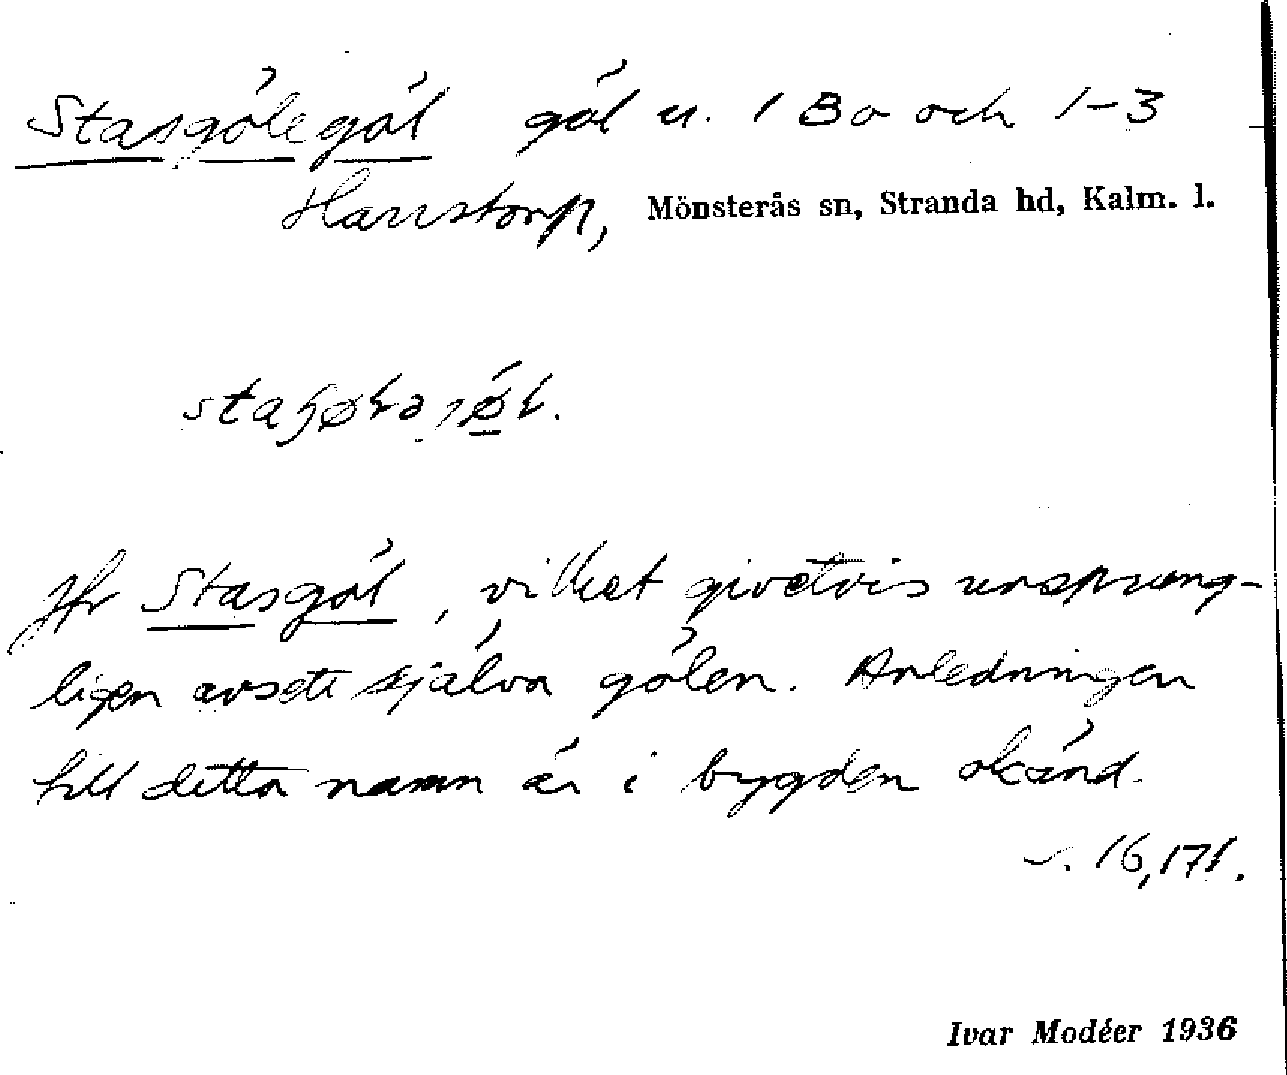 Stasgölegöl göl u. 1 Bo och 1-3
Harrstorp, Mönsterås sn, Stranda hd, Kalm. l.
Jfr Stasgöl, vilket givetvis ursprung-
ligen avsett själva gölen. Anledningen
till detta namn är i bygden okänd.
s. 16, 171.
Ivar Modéer 1936